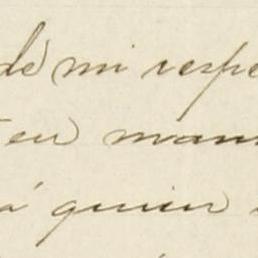 de mi respe
en man
á quien